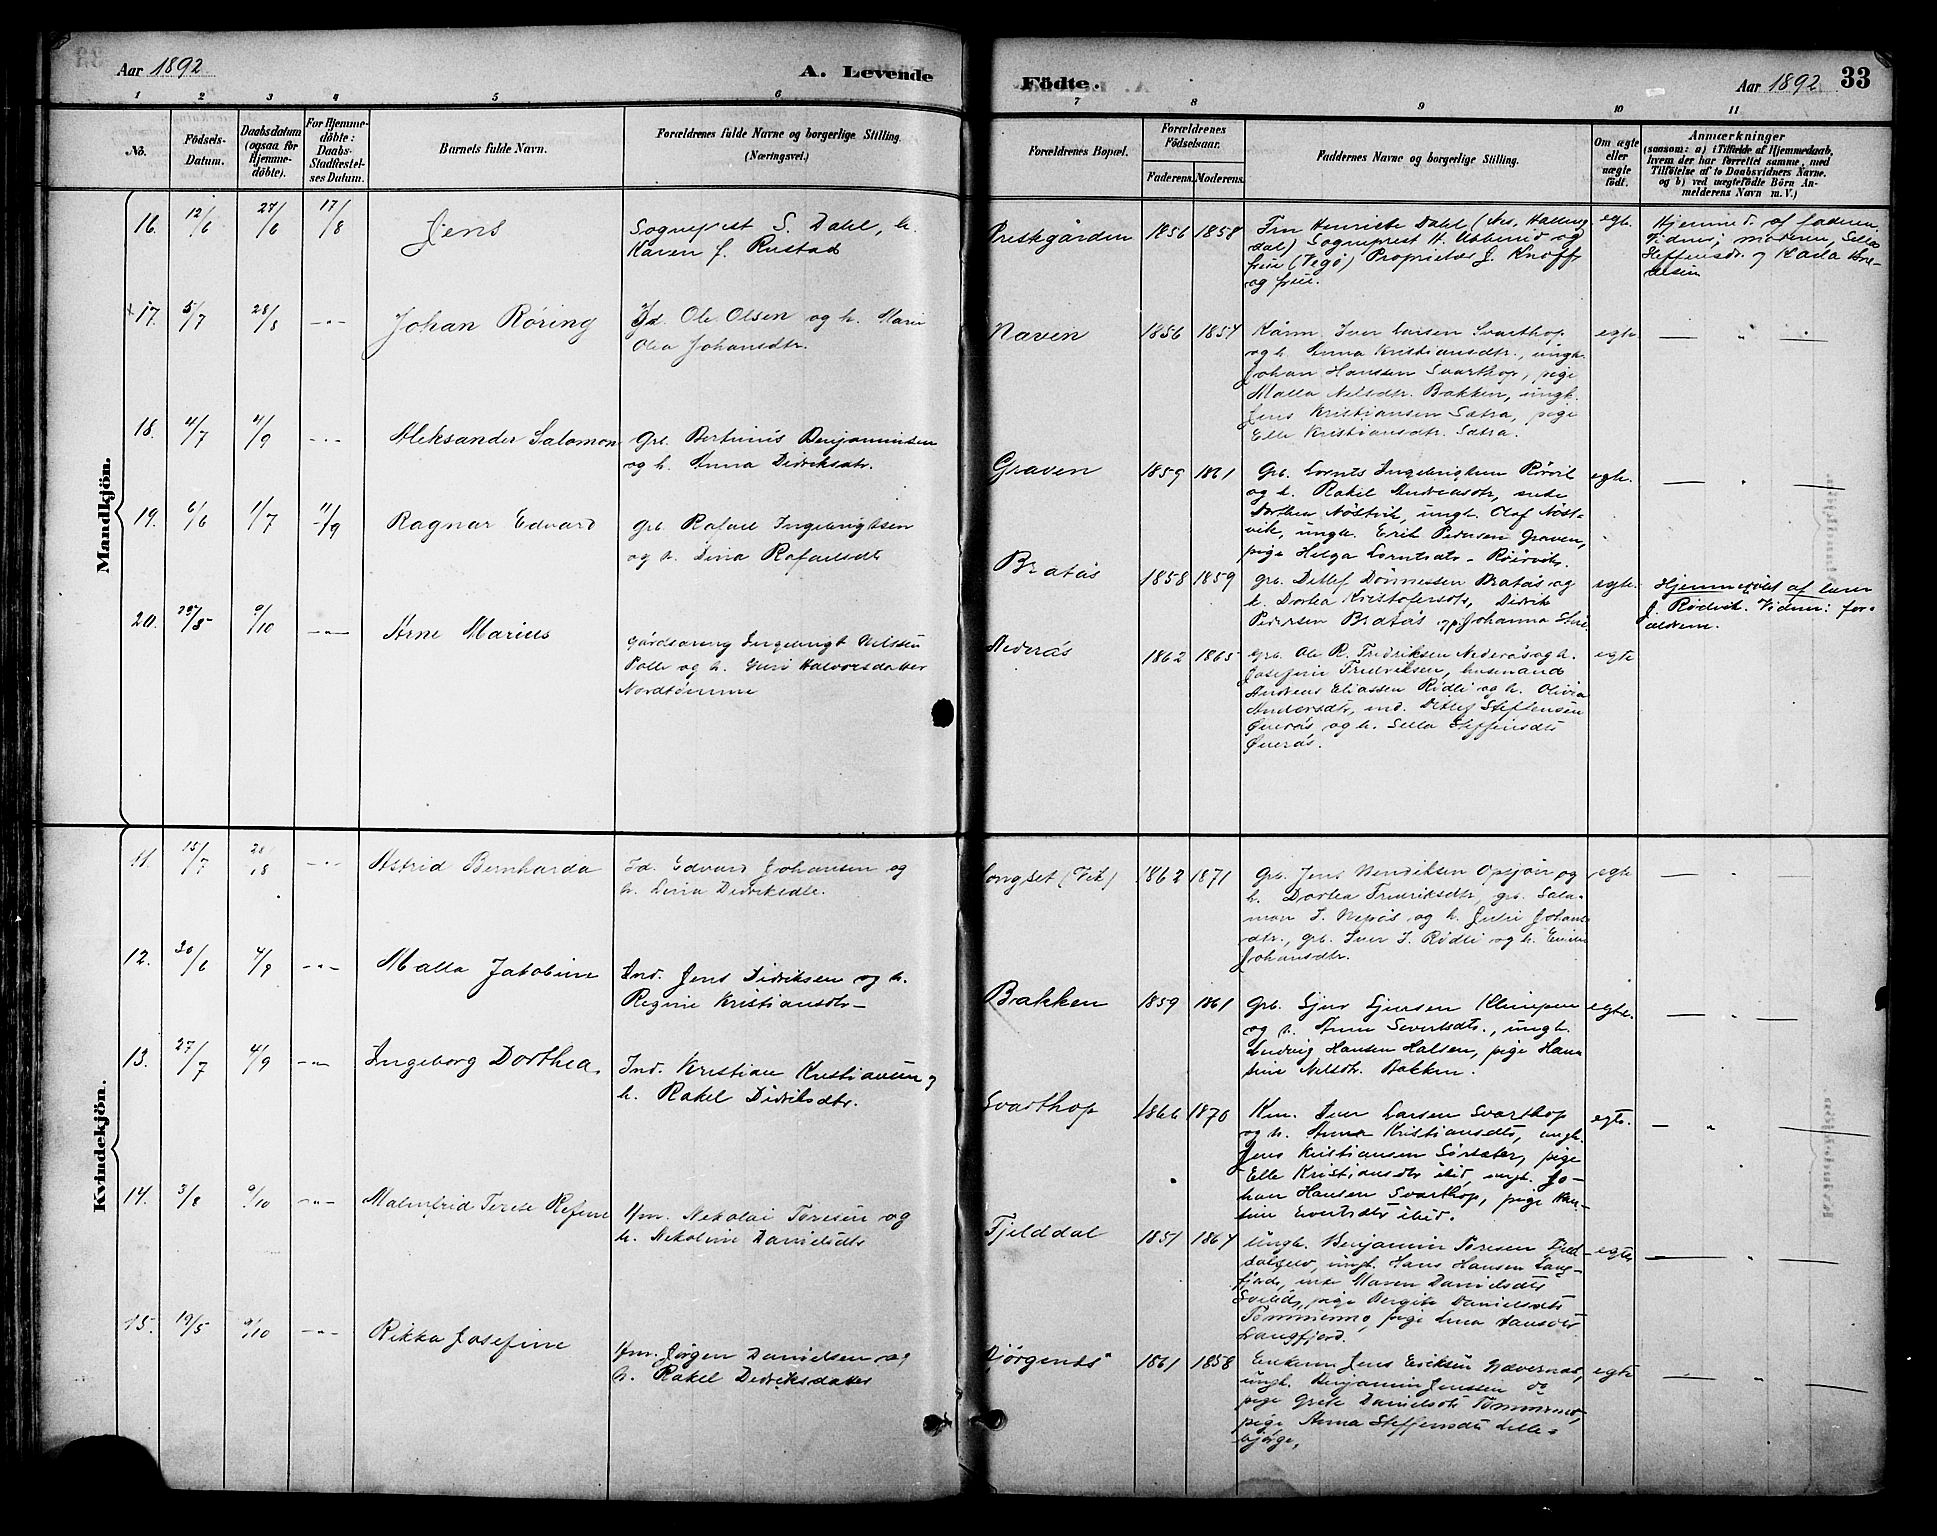 Aar 1892
A. Levende
Födte.
Aar 1892
33
1 2 3 4 5 6 7 8 9 10 11
No.
Födsels-
Datum.
Daabsdatum
(ogsaa for
Hjemme-
döbte).
For Hjemme-
döbte:
Daabs-
Stadfæstel-
ses Datum.
Barnets fulde Navn.
Forældrenes fulde Navne og borgerlige Stilling.
(Næringsvei.)
Forældrenes Bopæl.
Forældrenes
Födselsaar.
Faderens. Moderens.
Faddernes Navne og borgerlige Stilling.
Om ægte
eller
uægte
födt.
Anmærkninger
(saasom: a) i Tilfælde af Hjemmedaab,
hvem der har forrettet samme, med
Tilföielse af to Daabsvidners Navne.
og b) ved uægtefödte Börn An-
melderens Navn m. V.)
Mandkjön.
16. 12/6 27/6 17/8 Jens
Sogneprest S. Dahl, h.
Karen f. Rustad
Prestgården 1856 1858
Fru Henriette Dahl (Nes, Halling-
dal) Sogneprest H. og
frue (Vegø) Proprietær J. Knoff
og frue.
egte.
Hjemmed. af faderen.
Vidner; moderen, Sella
Steffensdr. og Karla
17. 5/7 28/8 -"- Johan Røring
Id. Ole Olsen og h. Marie
Olea Johansdtr.
Naven 1856 1857
Kårm. Iver Larsen Svarthop
og h. Anna Kristiansdtr., ungk.
Johan Hansen Svarthop, pige
Malla Nelsdtr. Bakken, ungk.
Jens Kristiansen Sætra, pige
Elle Kristiansdtr. Sætra.
egte
— " —
18. 4/7 4/9 -"- Aleksander Salomon
Grb. Bertinus Benjaminsen
og h. Anna Didriksdtr.
Graven 1859 1861
Grb. Lornts Ingebrigtsen Rørvik
og h. Rakel Andreasdtr, enke
Dorthea Nøstvik, ungk. Olaf Nøst-
vik, ungk. Erik Pedersen Graven,
pige Helga Lorntsdtr. Røirvik.
egte.
— " —
19. 6/6 1/7 11/9 Ragnar Edvard
Grb. Rafael Ingebrigtsen
og h. Dina Rafaelsdtr
Bratås 1858 1859
grb. Ditlef Dønnessen Bratås og
h. Dortea Kristofersdtr, Didrik
Pedersen Bratås og p. Johanna
egte.
Hjemmedøbt af lærer
J. Rødvik. Vidner: for-
ældrene.
20. 29/8 9/10 -"- Arne Marius
Gårdsarving Ingebrigt Nilssen
Polle og h. Guri Halvorsdatter
Nordtømme
Nederås 1862 1865
grb. Ole R. Fredriksen Nederås og h.
Josefine Fredriksen, husmand
Andreas Eliassen Rødli og h. Olivia
Andersdtr, ind. Ditlef Steffensen
Øverås og h. Sella Steffensdtr
Øverås.
egte
Kvindekjön.
11. 15/7 28/8 -"- Astrid Bernharda
Id. Edvard Johansen og
h. Lina Didriksdtr.
Longset (Vik) 1862 1871
Grb. Jens Hendriksen Opsjøn og
h. Dortea Fredriksdtr, grb. Sala-
mon J. Nepås og h. Julie Johans-
dtr., grb. Iver J. Rødli og h.
Johansdtr.
egte
— " —
12. 30/6 4/9 -"- Malla Jakobine
Ind. Jens Didriksen og h.
Regine Kristiansdtr
Bakken 1859 1861
Grb. Sjur Sjursen Klimpen
og h. Anne Sivertsdtr., ungk.
Ludvig Hansen Halsen, pige Han-
sine Nelsdtr. Bakken.
egte.
— " —
13. 27/7 4/9 -"- Ingeborg Dorthea.
Ind. Kristian Kristiansen og
h. Rakel Didriksdtr.
Svarthop 1866 1870
Km. Iver Larsen Svarthop
og h. Anna Kristiansdtr, ungk.
Jens Kristiansen Sørsæter, pige
Elle Kristiansdtr ibid, ungk. Jo-
han Hansen Svarthop, pige Han-
sine Evertsdtr ibid.
egte.
— " —
14. 3/8 9/10 -"- Malmfrid Terese Refine
Hm. Nekolai Toresen og
h. Nekoline Danielsdtr
Fjelddal 1851 1864
Ungk. Benjamin Toresen
ungk. Hans Hansen Lang-
fjord, enke Maren Danielsdtr
pige Bergite Danielsdtr
Tømmermo, pige Lina Hansdtr
Langfjord.
egte
— " —
15. 19/5 9/10 -"- Rikka Josefine
Hm. Jørgen Danielsen og
h. Rakel Didriksdatter
Bjørgend 1861 1858
Enkem. Jens Eriksen Nævernes,
ungk. Benjamin Jenssen do
pige Grete Danielsdtr Tømmermo,
pige Anna Steffensdtr Lille-
bjørge,
egte
— " —